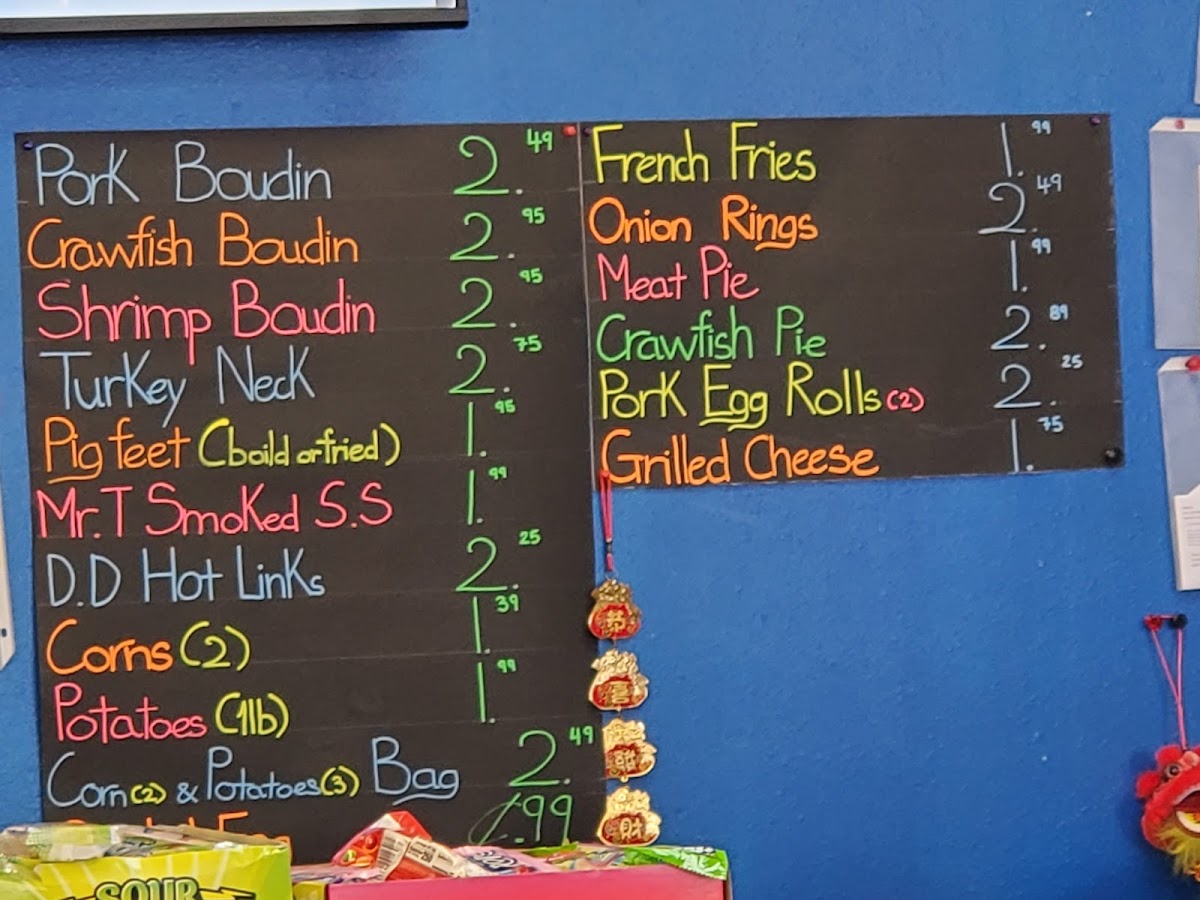 Pork Boudin 2.49
Crawfish Boudin 2.95
Shrimp Boudin 2.95
Turkey Neck 2.75
Pig feet (boild or fried) 1.95
Mr.T Smoked S.S 1.99
D.D Hot Links 2.25
Corns (2) 1.39
Potatoes (1lb) 1.99
Corn (2) & Potatoes (3) Bag 2.49
.99
French Fries 1.99
Onion Rings 2.49
Meat Pie 1.99
Crawfish Pie 2.89
Pork Egg Rolls (2) 2.25
Grilled Cheese 1.75
財
SOUR